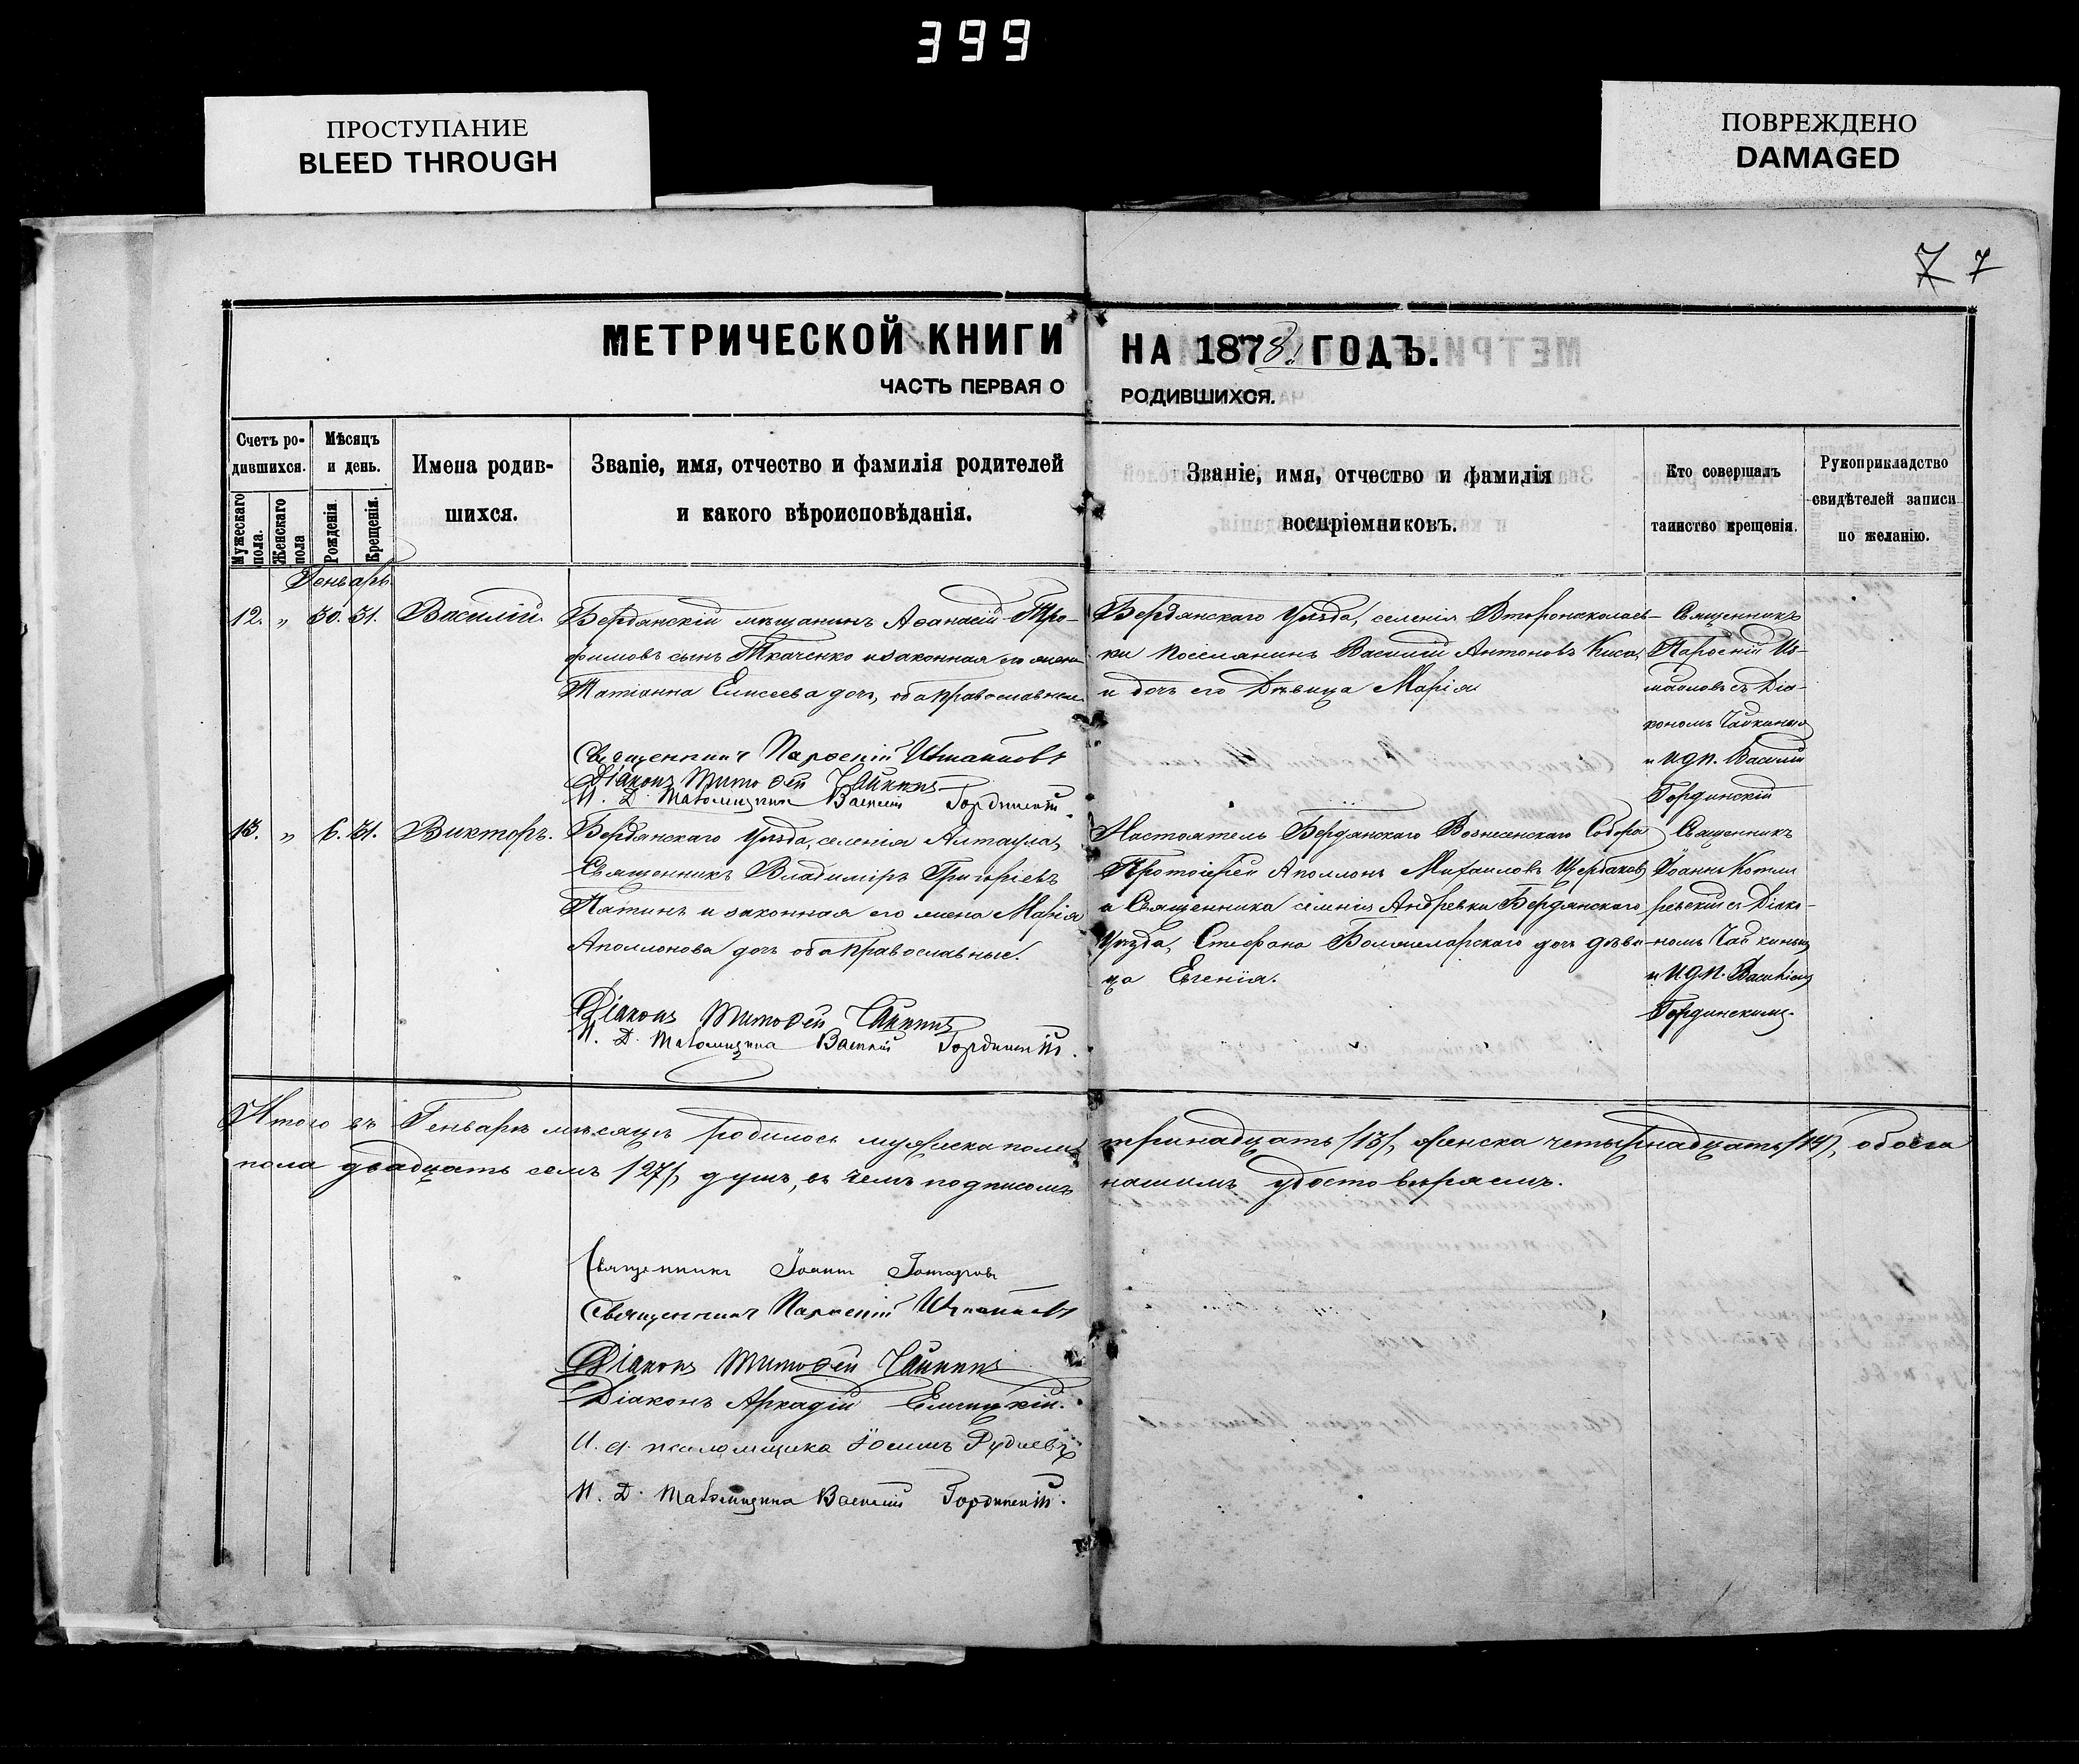 399
ПРОСТУПАНИЕ
BLEED THROUGH
ПОВРЕЖДЕНО
DAMAGED
7 7
МЕТРИЧЕСКОЙ КНИГИ НА 1878 ГОДЪ.
ЧАСТЬ ПЕРВАЯ О РОДИВШИХСЯ.
Счетъ родившихся.
Мужескаго пола.
Женскаго пола
Мѣсяцъ и день.
Рожденія.
Крещенія.
Имена родившихся.
Званіе, имя, отчество и фамилія родителей
и какого вѣроисповѣданія.
Званіе, имя, отчество и фамилія
воспріемниковъ.
Кто совершалъ
таинство крещенія.
Рукоприкладство
свидѣтелей записи
по желанію.
Генварь
12. „ 30. 31. Василій.
Бердянскій мѣщанинъ Аѳанасій Тро-
фимовъ сынъ Ткаченко и законная его жена
Татіанна Елисеева дочь, оба православные
Бердянскаго Уѣзда, селенія Второниколаев-
ки поселянинъ Василій Антоновъ
и дочь его Дѣвица Марія
Священникъ
Парѳеній Из-
маиловъ съ Діа-
кономъ Чайкинымъ
и И.д.п. Василій
Гординскій
Священникъ Парѳеній Измаиловъ
Діаконъ Тимоѳей Чайкинъ
И. Д. Псаломщика Василій Гординскій.
13. „ 6. 31. Викторъ.
Бердянскаго Уѣзда, селенія Алтаула,
Священникъ Владиміръ Григоріевъ
и законная его жена Марія
Аполлонова дочь оба православные.
Настоятель Бердянскаго Вознесенскаго Собора
Протоіерей Аполлонъ Михаиловъ Щербаковъ
и Священника селенія Андревки Бердянскаго
Уѣзда, Стефана дочь дѣви-
ца Евгенія.
Священникъ
Іоаннъ Котля-
ревскій съ Діако-
номъ Чайкинымъ
и И.д.п. Василіемъ
Гординскимъ.
Діаконъ Тимоѳей Чайкинъ
И. Д. Псаломщика Василій Гординскій.
Итого въ Генварѣ мѣсяцѣ родилось мужеска пола тринадцать /13/, женска четырнадцать /14/, обоего
пола двадцать семь /27/ душъ, въ чемъ подписомъ нашимъ удостовѣряемъ.
Священникъ Іоаннъ
Священникъ Парѳеній Измаиловъ
Діаконъ Тимоѳей Чайкинъ
Діаконъ Аркадій
И. д. псаломщика
И. Д. Псаломщика Василій Гординскій.